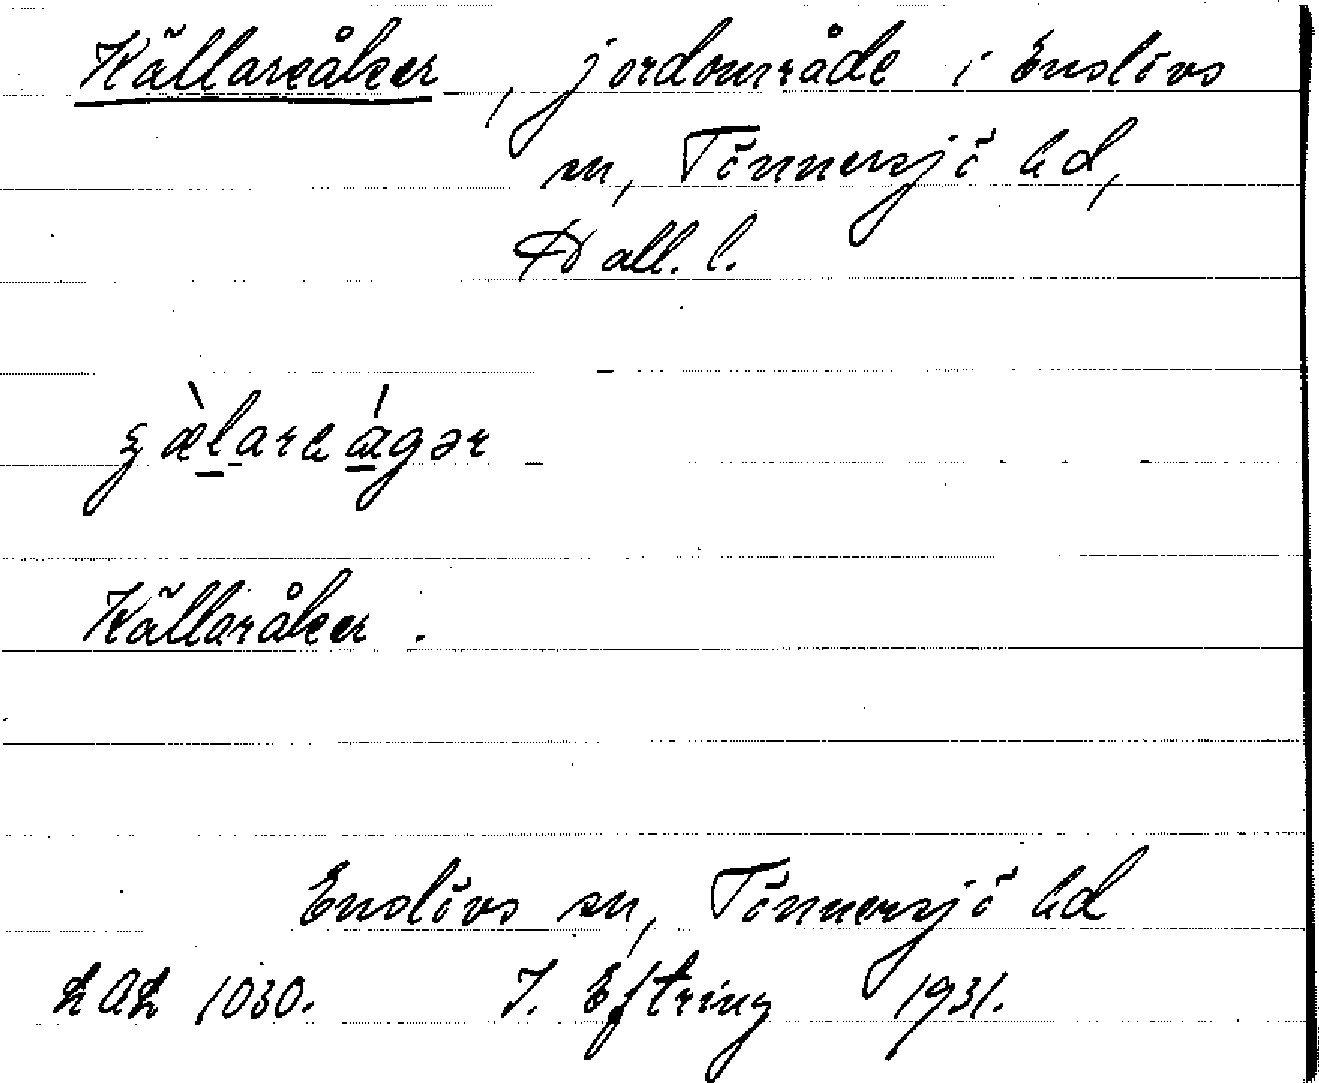 Källareåker, jordområde i Enslövs
sn, Tönnersjö hd,
Hall. l.
Källaråker.
Enslövs sn, Tönnersjö hd
LAL 1030. J. Eftring 1931.